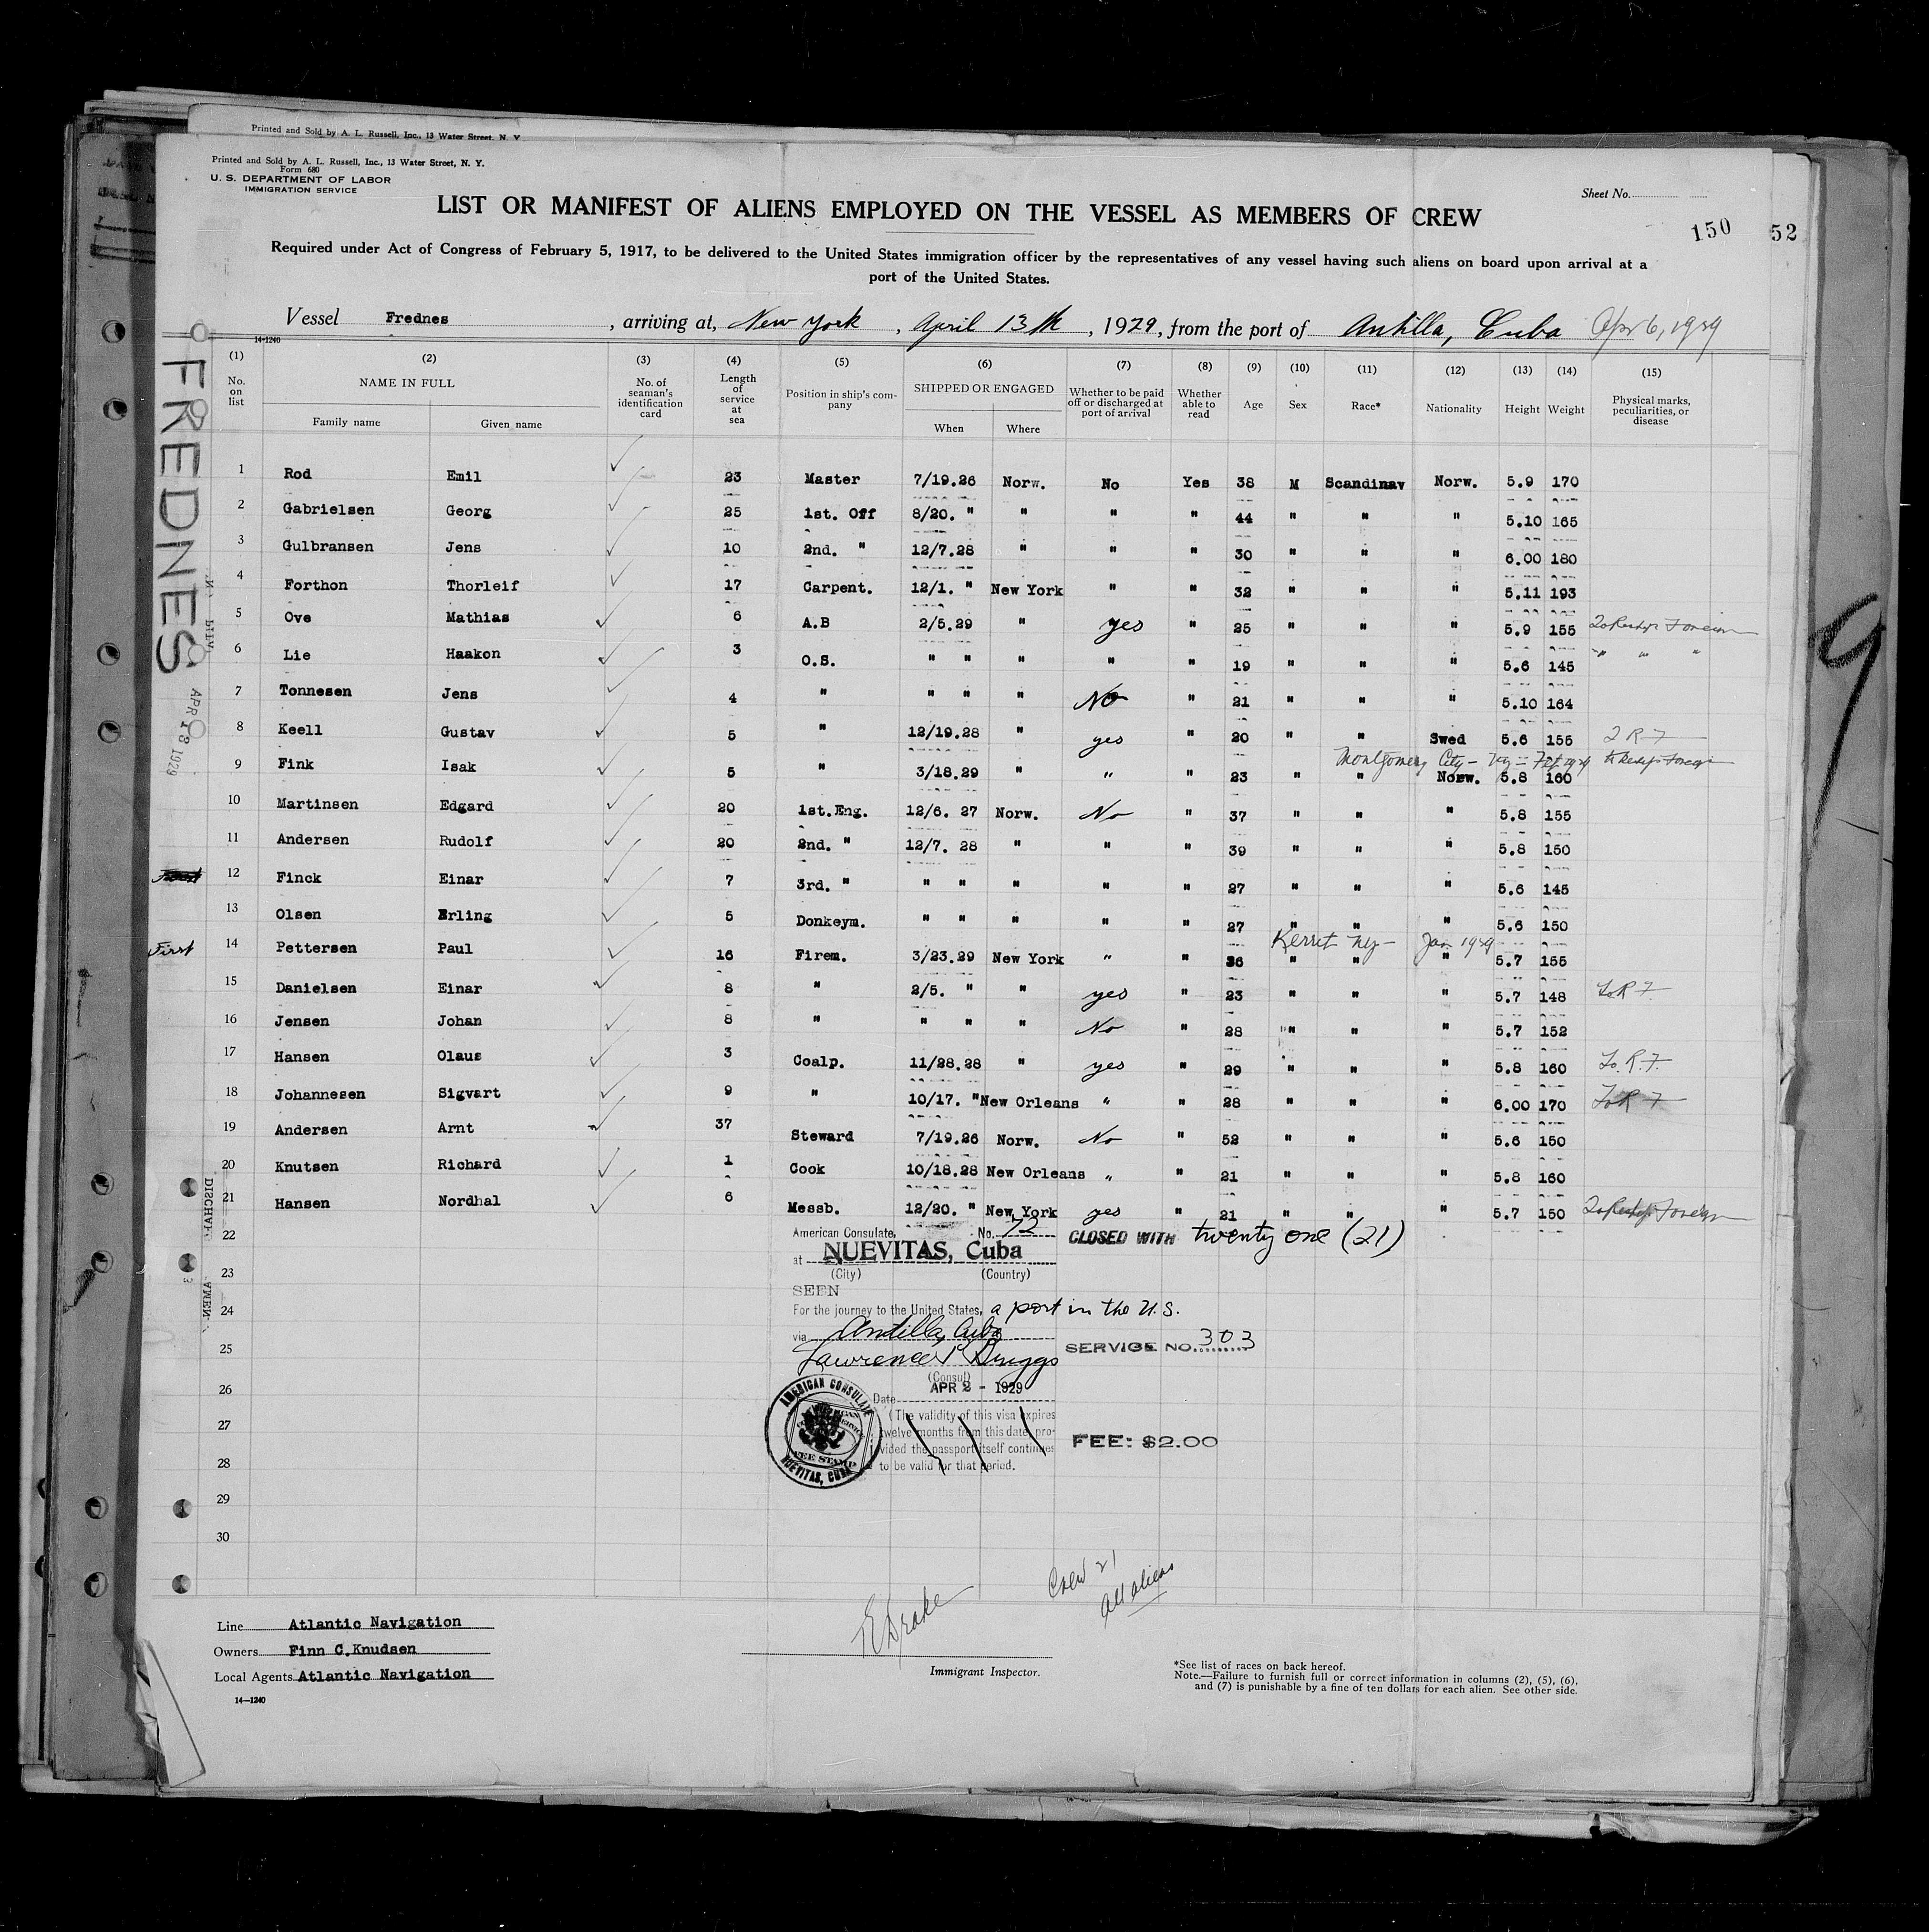 Printed and Sold by A. L. Russell, Inc., 13 Water Street, N. Y
Printed and Sold by A. L. Russell, Inc., 13 Water Street, N. Y.
Form 680
U. S. DEPARTMENT OF LABOR
IMMIGRATION SERVICE
Sheet No.
LIST OR MANIFEST OF ALIENS EMPLOYED ON THE VESSEL AS MEMBERS OF CREW
150 52
Required under Act of Congress of February 5, 1917, to be delivered to the United States immigration officer by the representatives of any vessel having such aliens on board upon arrival at a
port of the United States.
Vessel Frednes, arriving at, New York, April 13th, 1929, from the port of Antilla, Cuba Apr 6, 1929
14-1240
FREDNES
APR 13 1929
9
(1) No. on list (2) NAME IN FULL Family name Given name (3) No. of seaman's identification card (4) Length of service at sea (5) Position in ship's company (6) SHIPPED OR ENGAGED When Where (7) Whether to be paid off or discharged at port of arrival (8) Whether able to read (9) Age (10) Sex (11) Race* (12) Nationality (13) Height (14) Weight (15) Physical marks, peculiarities, or disease
1 Rod Emil 23 Master 7/19.26 Norw. No Yes 38 M Scandinav Norw. 5.9 170
2 Gabrielsen Georg 25 1st. Off 8/20. " " " " 44 " " " 5.10 165
3 Gulbransen Jens 10 2nd. " 12/7.28 " " " 30 " " " 6.00 180
4 Forthon Thorleif 17 Carpent. 12/1. " New York " " 32 " " " 5.11 193
5 Ove Mathias 6 A.B 2/5.29 " yes " 25 " " " 5.9 155 To Reship Foreign
6 Lie Haakon 3 O.S. " " " " " 19 " " " 5.6 145 " " "
7 Tonnesen Jens 4 " " " " No " 21 " " " 5.10 164
8 Keell Gustav 5 " 12/19.28 " yes " 20 " " Swed 5.6 155 T R F
Montgomery City - Ny - to Reship Foreign
9 Fink Isak 5 " 3/18.29 " " " 23 " " Norw. 5.8 160
10 Martinsen Edgard 20 1st.Eng. 12/6. 27 Norw. No " 37 " " " 5.8 155
11 Andersen Rudolf 20 2nd. " 12/7. 28 " " " 39 " " " 5.8 150
12 Finck Einar 7 3rd. " " " " " " 27 " " " 5.6 145
13 Olsen Erling 5 Donkeym. " " " " " 27 " " " 5.6 150
Kerrit Ny - Jan 1929
First 14 Pettersen Paul 16 Firem. 3/23.29 New York " " 36 " " " 5.7 155
15 Danielsen Einar 8 " 2/5. " " yes " 23 " " " 5.7 148 To R F
16 Jensen Johan 8 " " " " No " 28 " " " 5.7 152
17 Hansen Olaus 3 Coalp. 11/28.28 " yes " 29 " " " 5.8 160 To. R. F.
18 Johannesen Sigvart 9 " 10/17. " New Orleans " " 28 " " " 6.00 170 To R F
19 Andersen Arnt 37 Steward 7/19.26 Norw. No " 52 " " " 5.6 150
20 Knutsen Richard 1 Cook 10/18.28 New Orleans " " 21 " " " 5.8 160
21 Hansen Nordhal 6 Messb. 12/20. " New York yes " 21 " " " 5.7 150 To Reship Foreign
22 American Consulate, No. 72 CLOSED WITH twenty one (21)
at NUEVITAS, Cuba
23 (City) (Country)
SEEN
24 For the journey to the United States, a port in the U.S.
via Antilla, Cuba
25 Lawrence P Briggs SERVICE NO. 303
(Consul)
26 Date APR 2 - 1929
AMERICAN CONSULATE
FEE STAMP
NUEVITAS, CUBA
27 (The validity of this visa expires
twelve months from this date, pro-
vided the passport itself continues
28 to be valid for that period.
FEE: $2.00
29
30
Crew 21
All aliens
E Drake
Immigrant Inspector.
Line Atlantic Navigation
Owners Finn C. Knudsen
Local Agents Atlantic Navigation
14—1240
*See list of races on back hereof.
Note.—Failure to furnish full or correct information in columns (2), (5), (6),
and (7) is punishable by a fine of ten dollars for each alien. See other side.